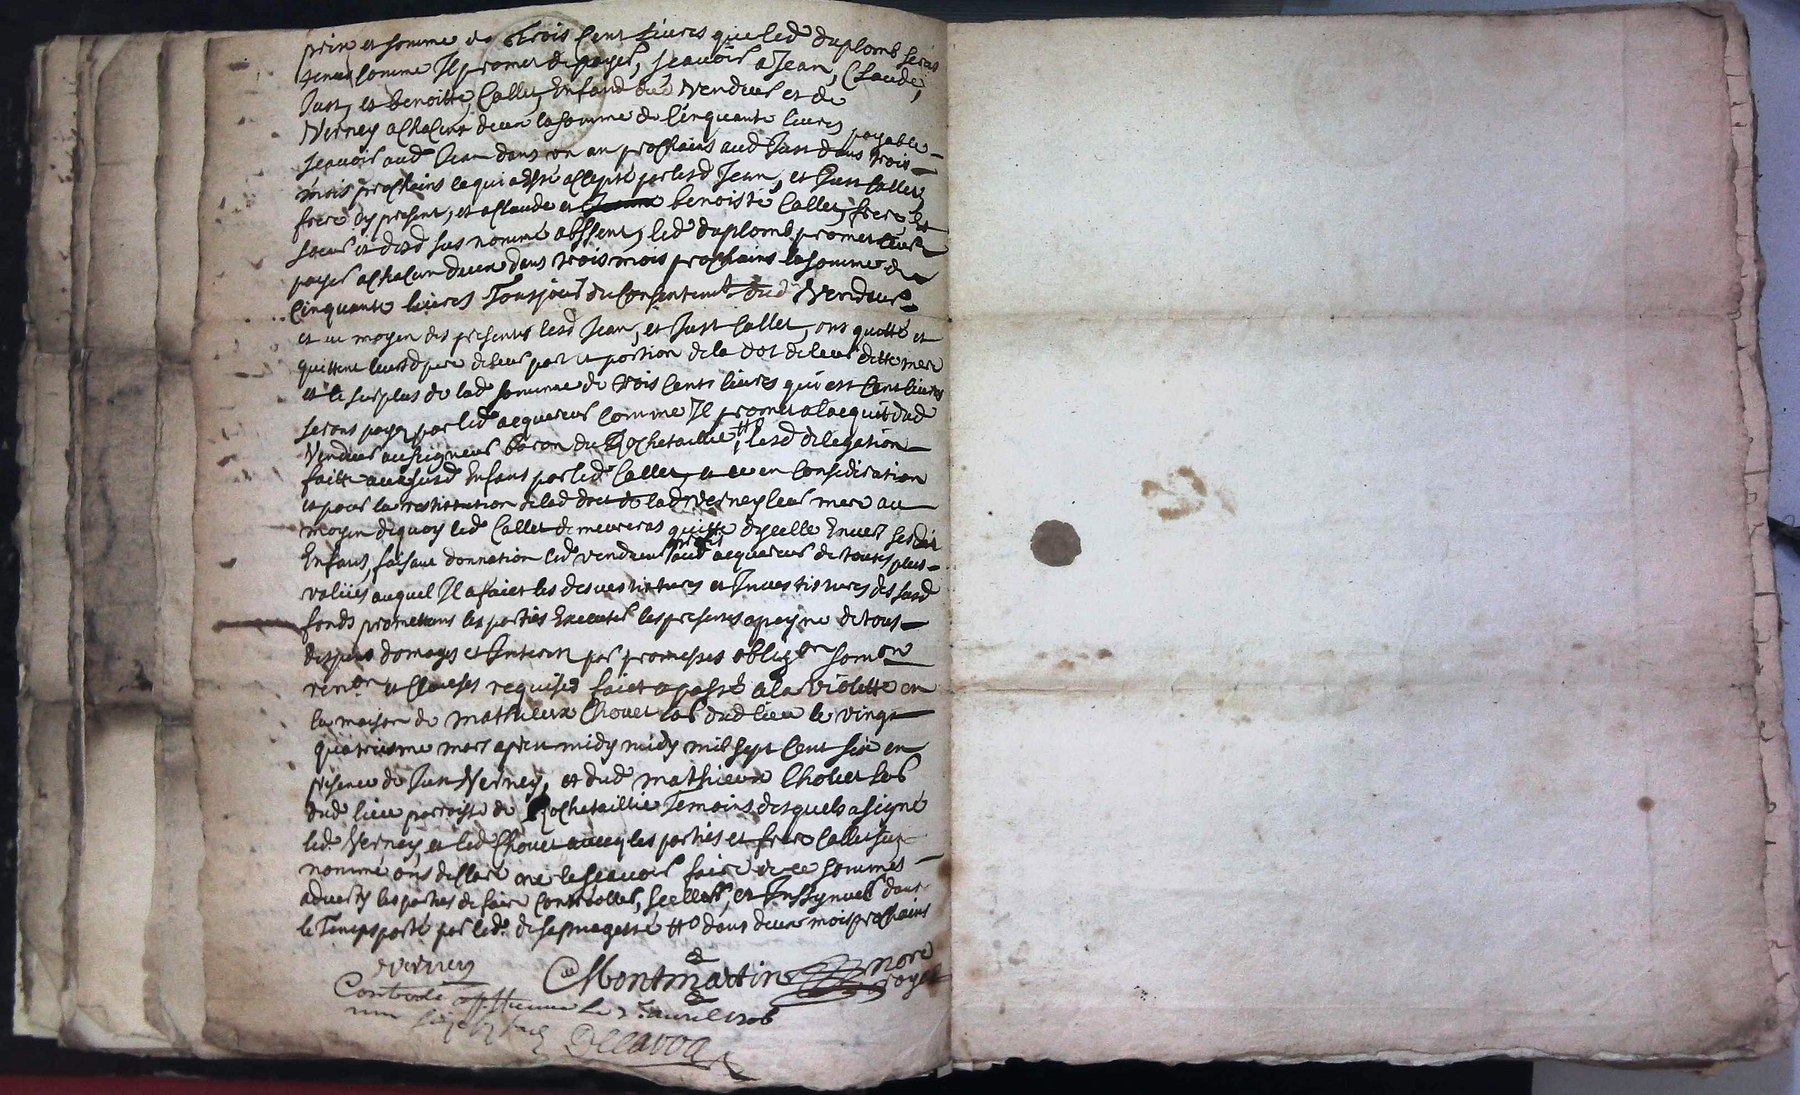 prix et somme de trois Cent Livres que led duplomb seras
tenus comme Il promet de payer, scavoir a Jean, Claude,
Just, et benoitte, Callet, Enfand dud Vendeur et de
Verney a chacun deux la somme de Cinquante livres
payable
scavoir aud Jean dans un an prochains aud Just dans trois
mois prochains ce qui a esté accepté par lesd Jean, et Just Callet
frere Icy present, et a Claude et benoiste Callet, frere et
soeur et desd sus nommé abssent, led duplomb promet leur
payer a chacun deux dans trois mois prochains la somme de
Cinquante livres Tousjour du Consentemt dud Vendeur
et au moyen des presentes lesd Jean, et Just Callet, ont quitté et
quittent leursd pere de leur part et portion de la dot de leur ditte mere
et le surplus de lad somme de trois Cents livres qui est Cent livres
serons payez par led acquereur comme Il promet a lacquit dud
Vendeur au seigneur baron de Rochetaillie, lesd delegation
faitte aux susd Enfans par led Callet, en Consideration
et pour la restitution de lad dot de lad Verney leur mere au
moyen de quoy led Callet demeureras quitte dycelle Envers sesdit
Enfans, faisant donnation led vendeur aud acquereur de toutes plus
values auquel Il a faict les desvestitures et Investitures des susd
fonds promettans les parties Executer les presentes a peyne de tous
despens domages et Interest par promesses obligon somon
renon et Clauses requises faict et passé a la Violette en
la maison de mathieux Chovet lab dud lieu le vingt
quatriesme mars apres midy midy mil sept Cent six en
presence de Jean Verney, et dud mathieux Chovet lab
dud lieu parroisse de Rochetaillie Temoins desquels a signé
led Verney, et led Chovet avecq les parties et frere Callet sus
nommé ons desclaré ne le scavoir faire de ce sommés
adverty les parties de faire Controoller, sceller, et Inssynuer dans
le Temps porté par led. de sa magesté dans deux mois prochains
Verney
Montmartin nore
royal
Controlé a St Etienne le avril 1706
Dellavoa